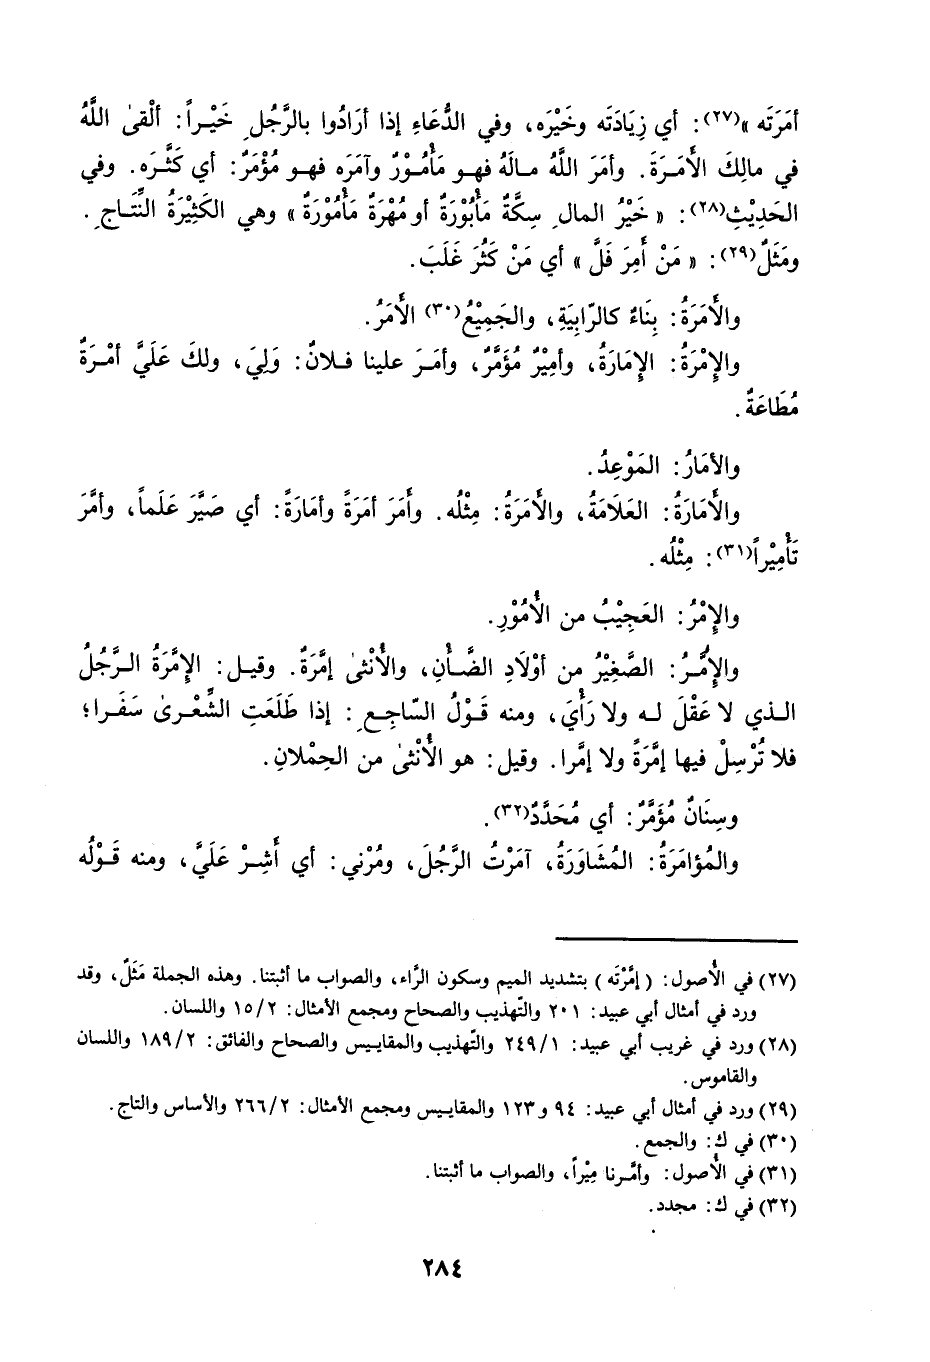 أمَرَتَه »(٢٧): أي زِيَادَتَه وخَيْرَه، وفي الدُّعَاءِ إذا أرَادُوا بالرَّجُلِ خَيْراً: ألْقىٰ اللَّهُ
في مالِكَ الأمَرَةَ. وأمَرَ اللَّهُ مالَهُ فهو مَأْمُوْرٌ وآمَرَه فهو مُؤْمَرٌ: أي كَثَّرَه. وفي
الحَدِيْثِ(٢٨): « خَيْرُ المالِ سِكَّةٌ مَأْبُوْرَةٌ أو مُهْرَةٌ مَأْمُوْرَةٌ » وهي الكَثِيْرَةُ النِّتَاجِ.
ومَثَلٌ(٢٩): « مَنْ أَمِرَ فَلَّ » أي مَنْ كَثُرَ غَلَبَ.
والأَمَرَةُ: بِنَاءٌ كالرّابِيَةِ، والجَمِيْعُ(٣٠) الأَمَرُ.
والإِمْرَةُ: الإِمَارَةُ، وأمِيْرٌ مُؤَمَّرٌ، وأمَرَ علينا فلانٌ: وَلِيَ، ولكَ عَلَيَّ أمْرَةٌ
مُطَاعَةٌ.
والأمَارُ: المَوْعِدُ.
والأَمَارَةُ: العَلَامَةُ، والأَمَرَةُ: مِثْلُه. وأَمَرَ أمَرَةً وأمَارَةً: أي صَيَّرَ عَلَماً، وأمَّرَ
تَأْمِيْراً(٣١): مِثْلُه.
والإِمْرُ: العَجِيْبُ من الأُمُوْرِ.
والإِمَّرُ: الصَّغِيْرُ من أوْلَادِ الضَّأْنِ، والأُنْثىٰ إمَّرَةٌ. وقيل: الإِمَّرَةُ الرَّجُلُ
الذي لا عَقْلَ له ولا رَأْيَ، ومنه قَوْلُ السّاجِعِ: إذا طَلَعَتِ الشِّعْرىٰ سَفَرا؛
فلا تُرْسِلْ فيها إمَّرَةً ولا إمَّرا. وقيل: هو الأُنْثىٰ من الحِمْلانِ.
وسِنَانٌ مُؤَمَّرٌ: أي مُحَدَّدٌ(٣٢).
والمُؤامَرَةُ: المُشَاوَرَةُ، آمَرْتُ الرَّجُلَ، ومُرْني: أي أَشِرْ عَلَيَّ، ومنه قَوْلُه
(٢٧) في الأُصول: ( إمَّرْتَه ) بتشديد الميم وسكون الرَّاء، والصواب ما أثبتنا. وهذه الجملة مَثَلٌ، وقد
ورد في أمثال أبي عبيد: ٢٠١ والتّهذيب والصحاح ومجمع الأمثال: ١٥/٢ واللسان.
(٢٨) ورد في غريب أبي عبيد: ٢٤٩/١ والتّهذيب والمقاييس والصحاح والفائق: ١٨٩/٢ واللسان
والقاموس.
(٢٩) ورد في أمثال أبي عبيد: ٩٤ و١٢٣ والمقاييس ومجمع الأمثال: ٢٦٦/٢ والأساس والتاج.
(٣٠) في ك: والجمع.
(٣١) في الأُصول: وأمَّرنا مِيْراً، والصواب ما أثبتنا.
(٣٢) في ك: مجدد.
٢٨٤